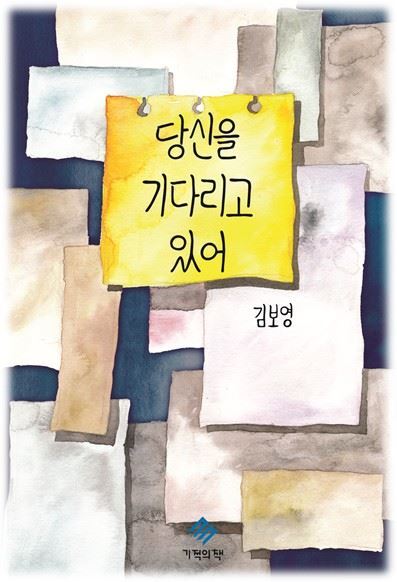 당신을
기다리고
있어
김보영
기적의책